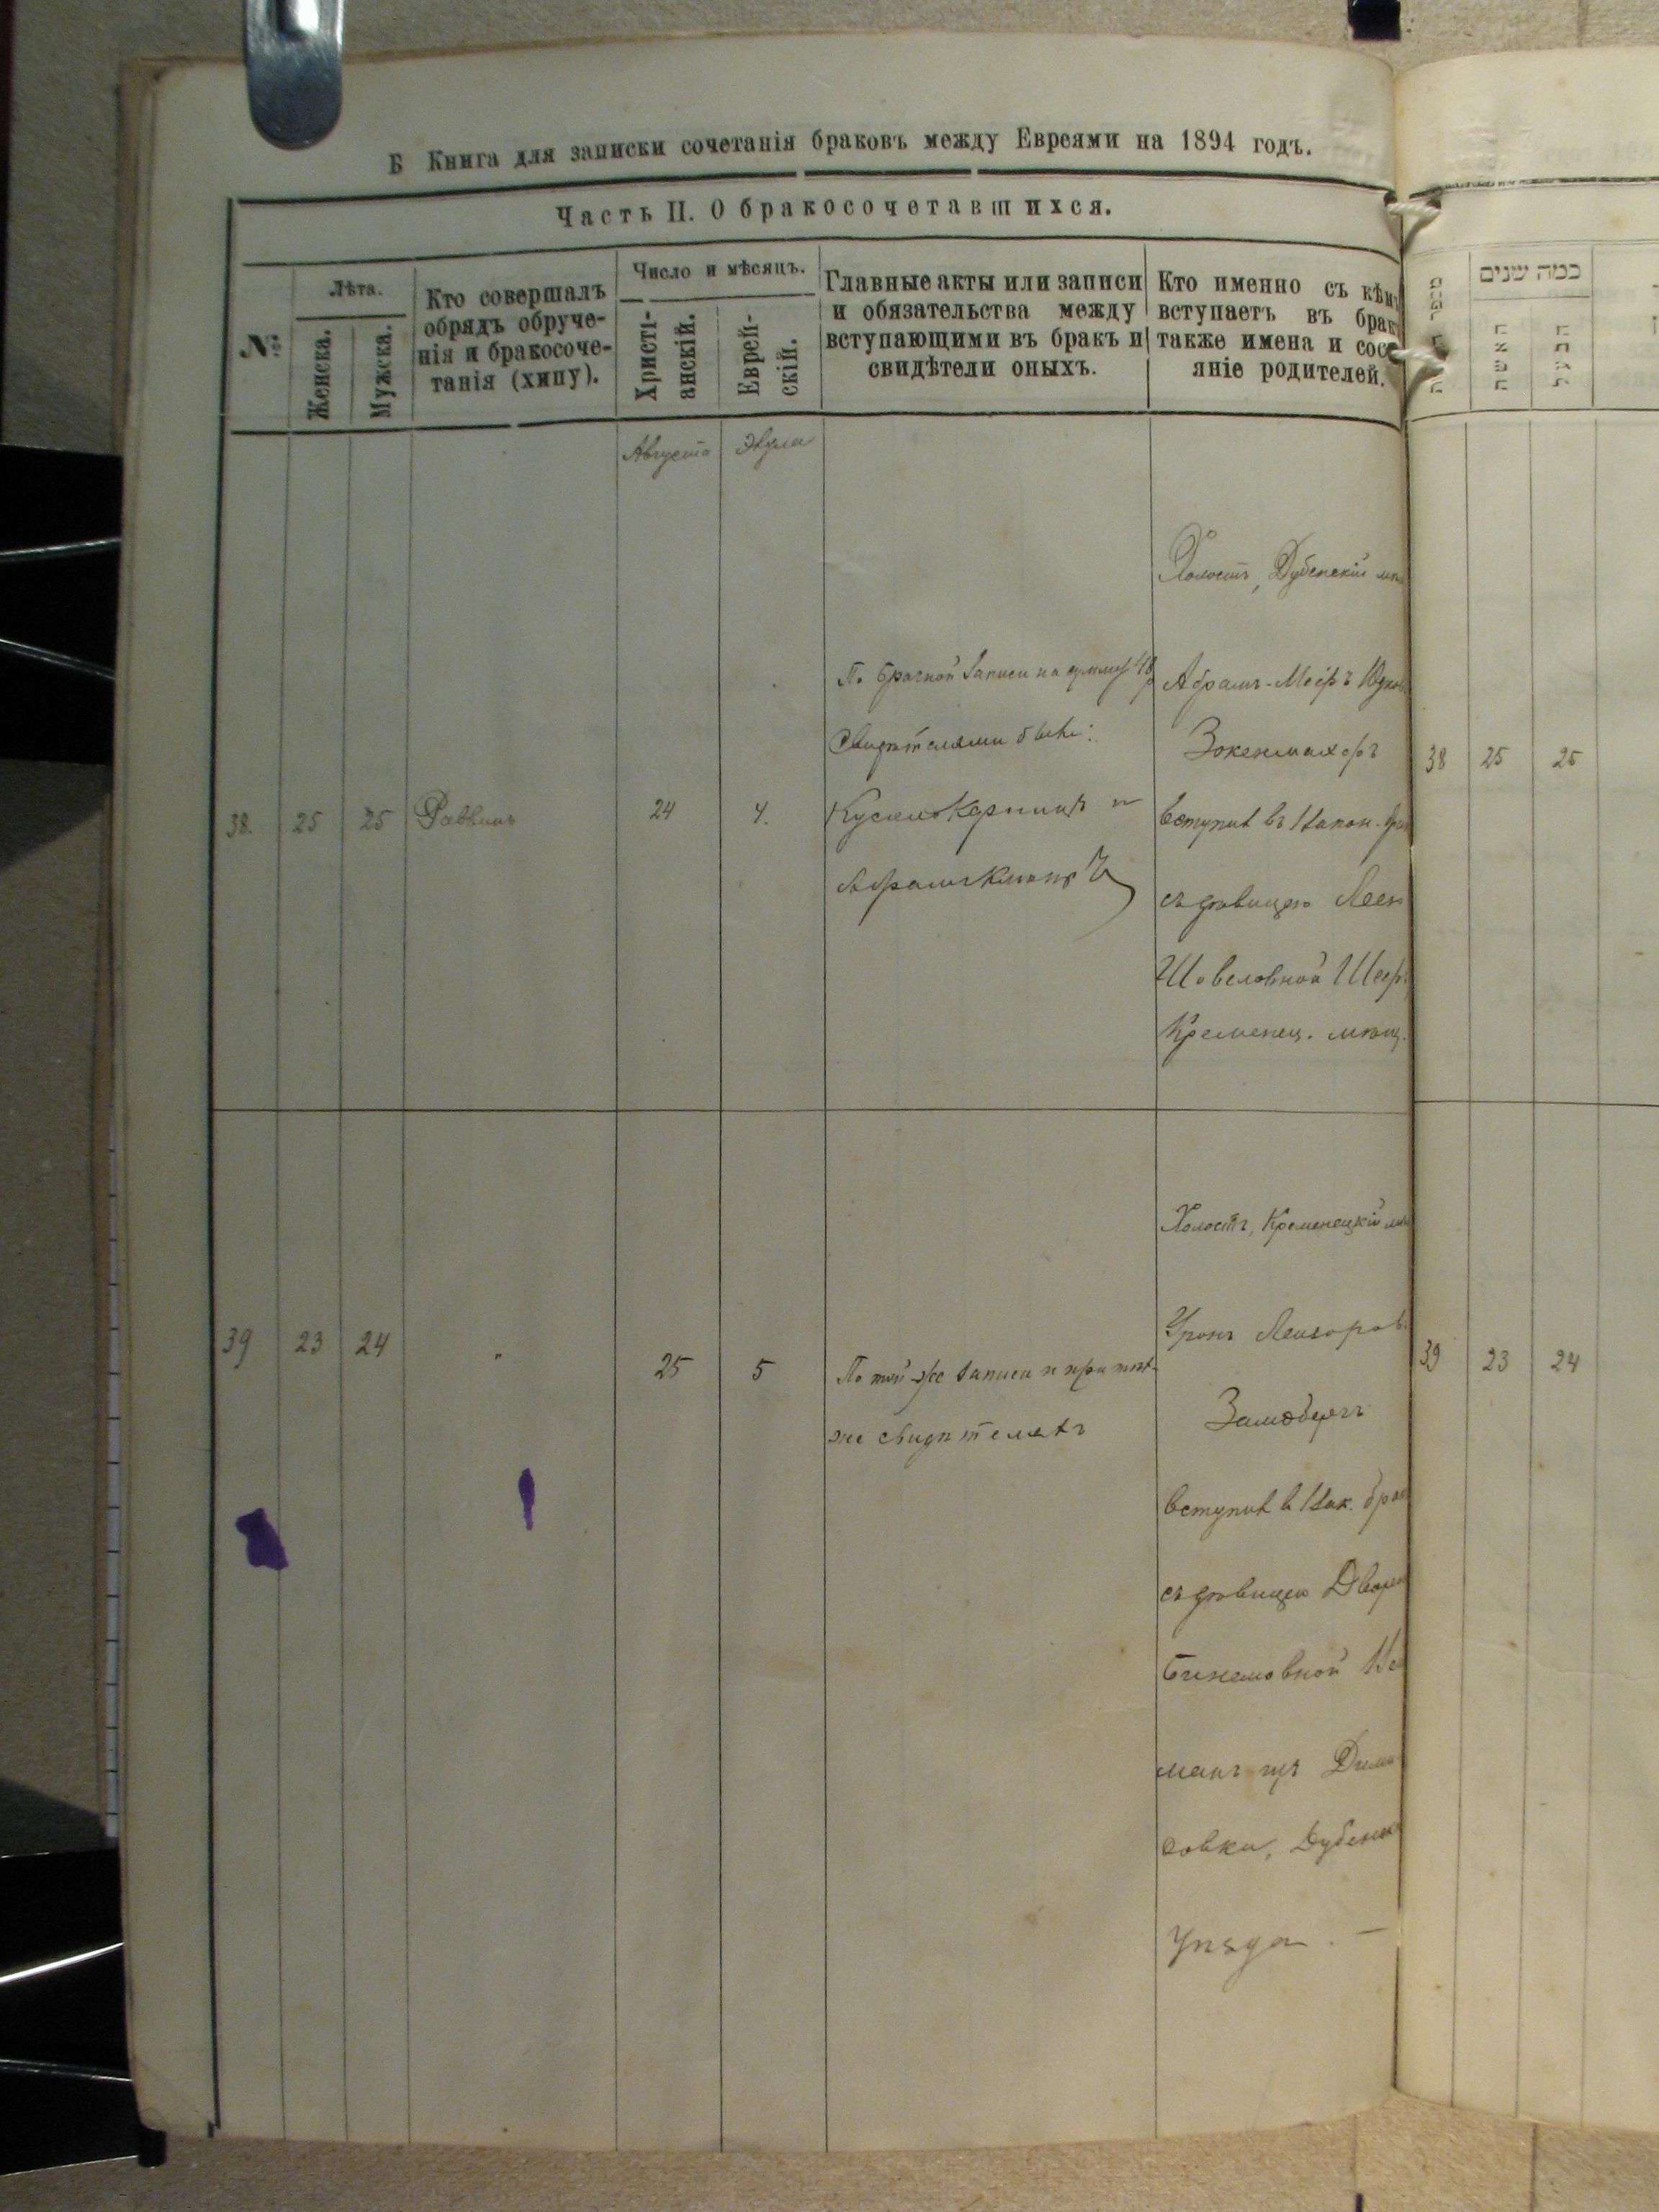 Б Книга для записки сочетанія браковъ между Евреями на 1894 годъ.
Часть II. О бракосочетавшихся.
№
Лѣта.
Женска.
Мужска.
Кто совершалъ
обрядъ обруче-
нія и бракосоче-
танія (хипу).
Число и мѣсяцъ.
Христі-
анскій.
Еврей-
скій.
Главные акты или записи
и обязательства между
вступающими въ бракъ и
свидѣтели оныхъ.
Кто именно съ кѣмъ
вступаетъ въ бракъ
также имена и сос
яніе родителей.
כמה שנים
האשה
הבעל
Августа
Элула
38.
25
25
Раввинъ
24
4.
По брачной записи на сумму 48 р
Свидѣтелями были:
и
Абрамъ
Холостъ, Дубенскій мѣщ
Абрамъ-Меѣръ Юдков
Зокенмахеръ
вступил въ закон. бра
съ дѣвицею Леею
Шовеловной Шеер
Кременец. мѣщ.
38
25
25
39
23
24
"
25
5
По той же записи и при тѣхъ
же свидѣтеляхъ
Холостъ, Кременецкій мѣщ
Лейзоров.
вступил в зак. брак
съ дѣвицею Дворею
манъ изъ Деми
довки, Дубенска
уѣзда. —
39
23
24